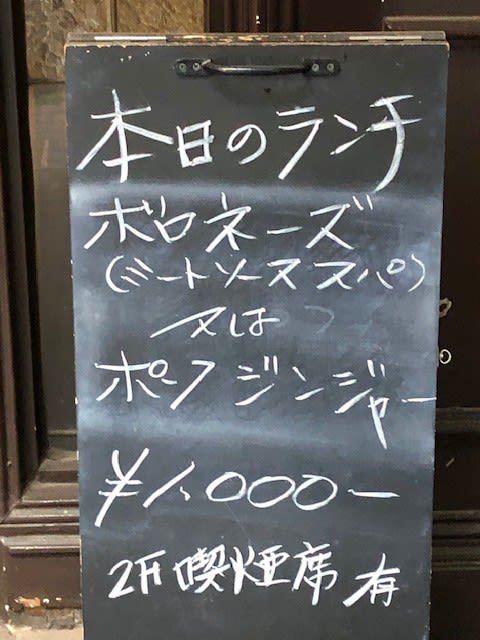 本日のランチ
ボロネーズ
(ミートソーススパ)
又は
ポークジンジャー
¥1,000ー
2F喫煙席有